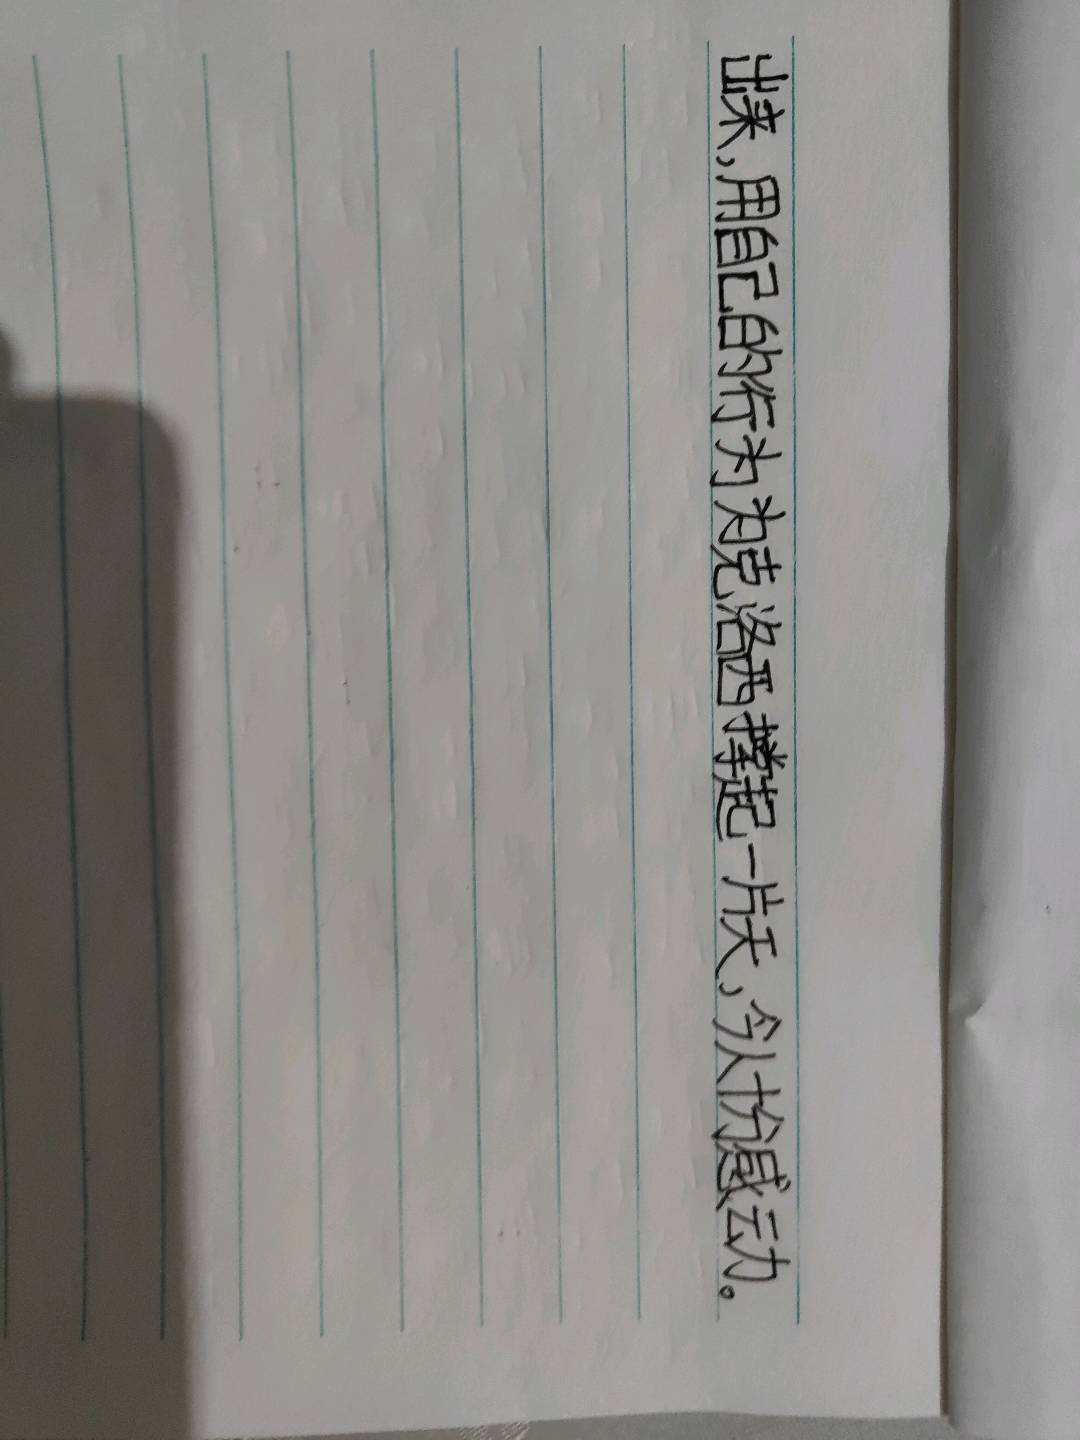 出来,用自己的行为为克洛西撑起一片天,令人十分感动。